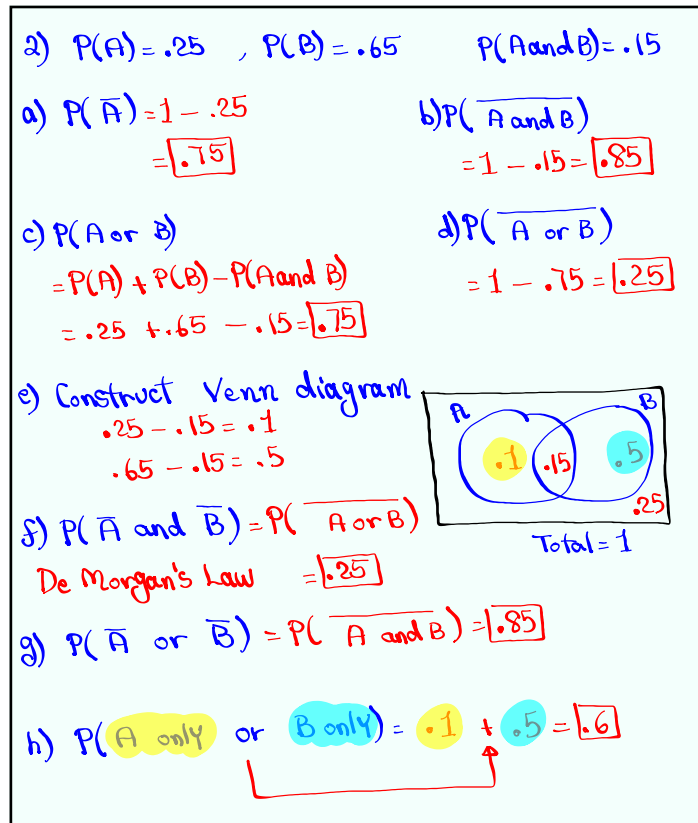 2) P(A) = .25 , P(B) = .65 P(A and B) = .15
a) P(A̅) = 1 - .25
= .75
b) P(A̅ ̅a̅n̅d̅ ̅B̅)
= 1 - .15 = .85
c) P(A or B)
= P(A) + P(B) - P(A and B)
= .25 + .65 - .15 = .75
d) P(A̅ ̅o̅r̅ ̅B̅)
= 1 - .75 = .25
e) Construct Venn diagram
.25 - .15 = .1
.65 - .15 = .5
A B
.1 .15 .5
.25
Total = 1
f) P(A̅ and B̅) = P(A̅ ̅o̅r̅ ̅B̅)
De Morgan's Law = .25
g) P(A̅ or B̅) = P(A̅ ̅a̅n̅d̅ ̅B̅) = .85
h) P(A only or B only) = .1 + .5 = .6